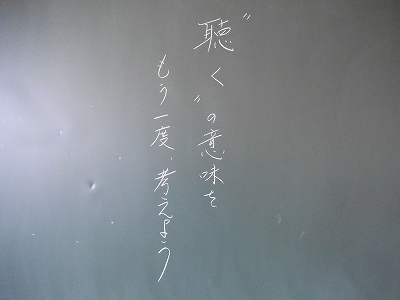 〝聴く〟の意味を
もう一度、考えよう